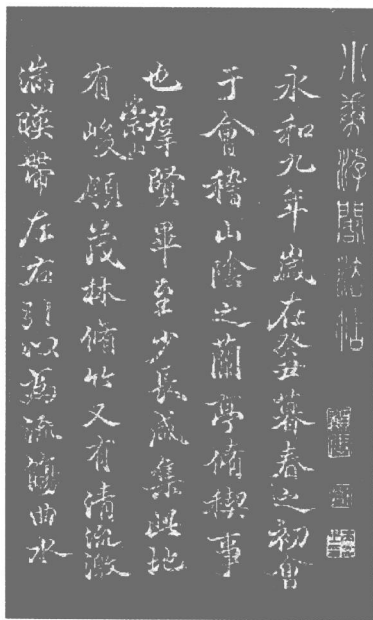 游閣法帖
永和九年歲在癸丑暮春之初會
于會稽山陰之蘭亭脩禊事
也羣賢畢至少長咸集此地
有崇山峻領茂林脩竹又有清流激
湍暎帶左右引以為流觴曲水